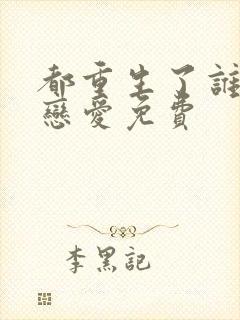 都重生了誰
戀愛免費
李黑記